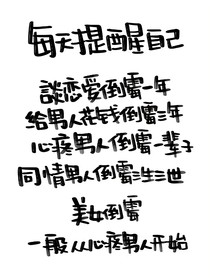 每天提醒自己
談恋爱倒霉一年
给男人花钱倒霉三年
心疼男人倒霉一辈子
同情男人倒霉三生三世
美女倒霉
一般从心疼男人开始